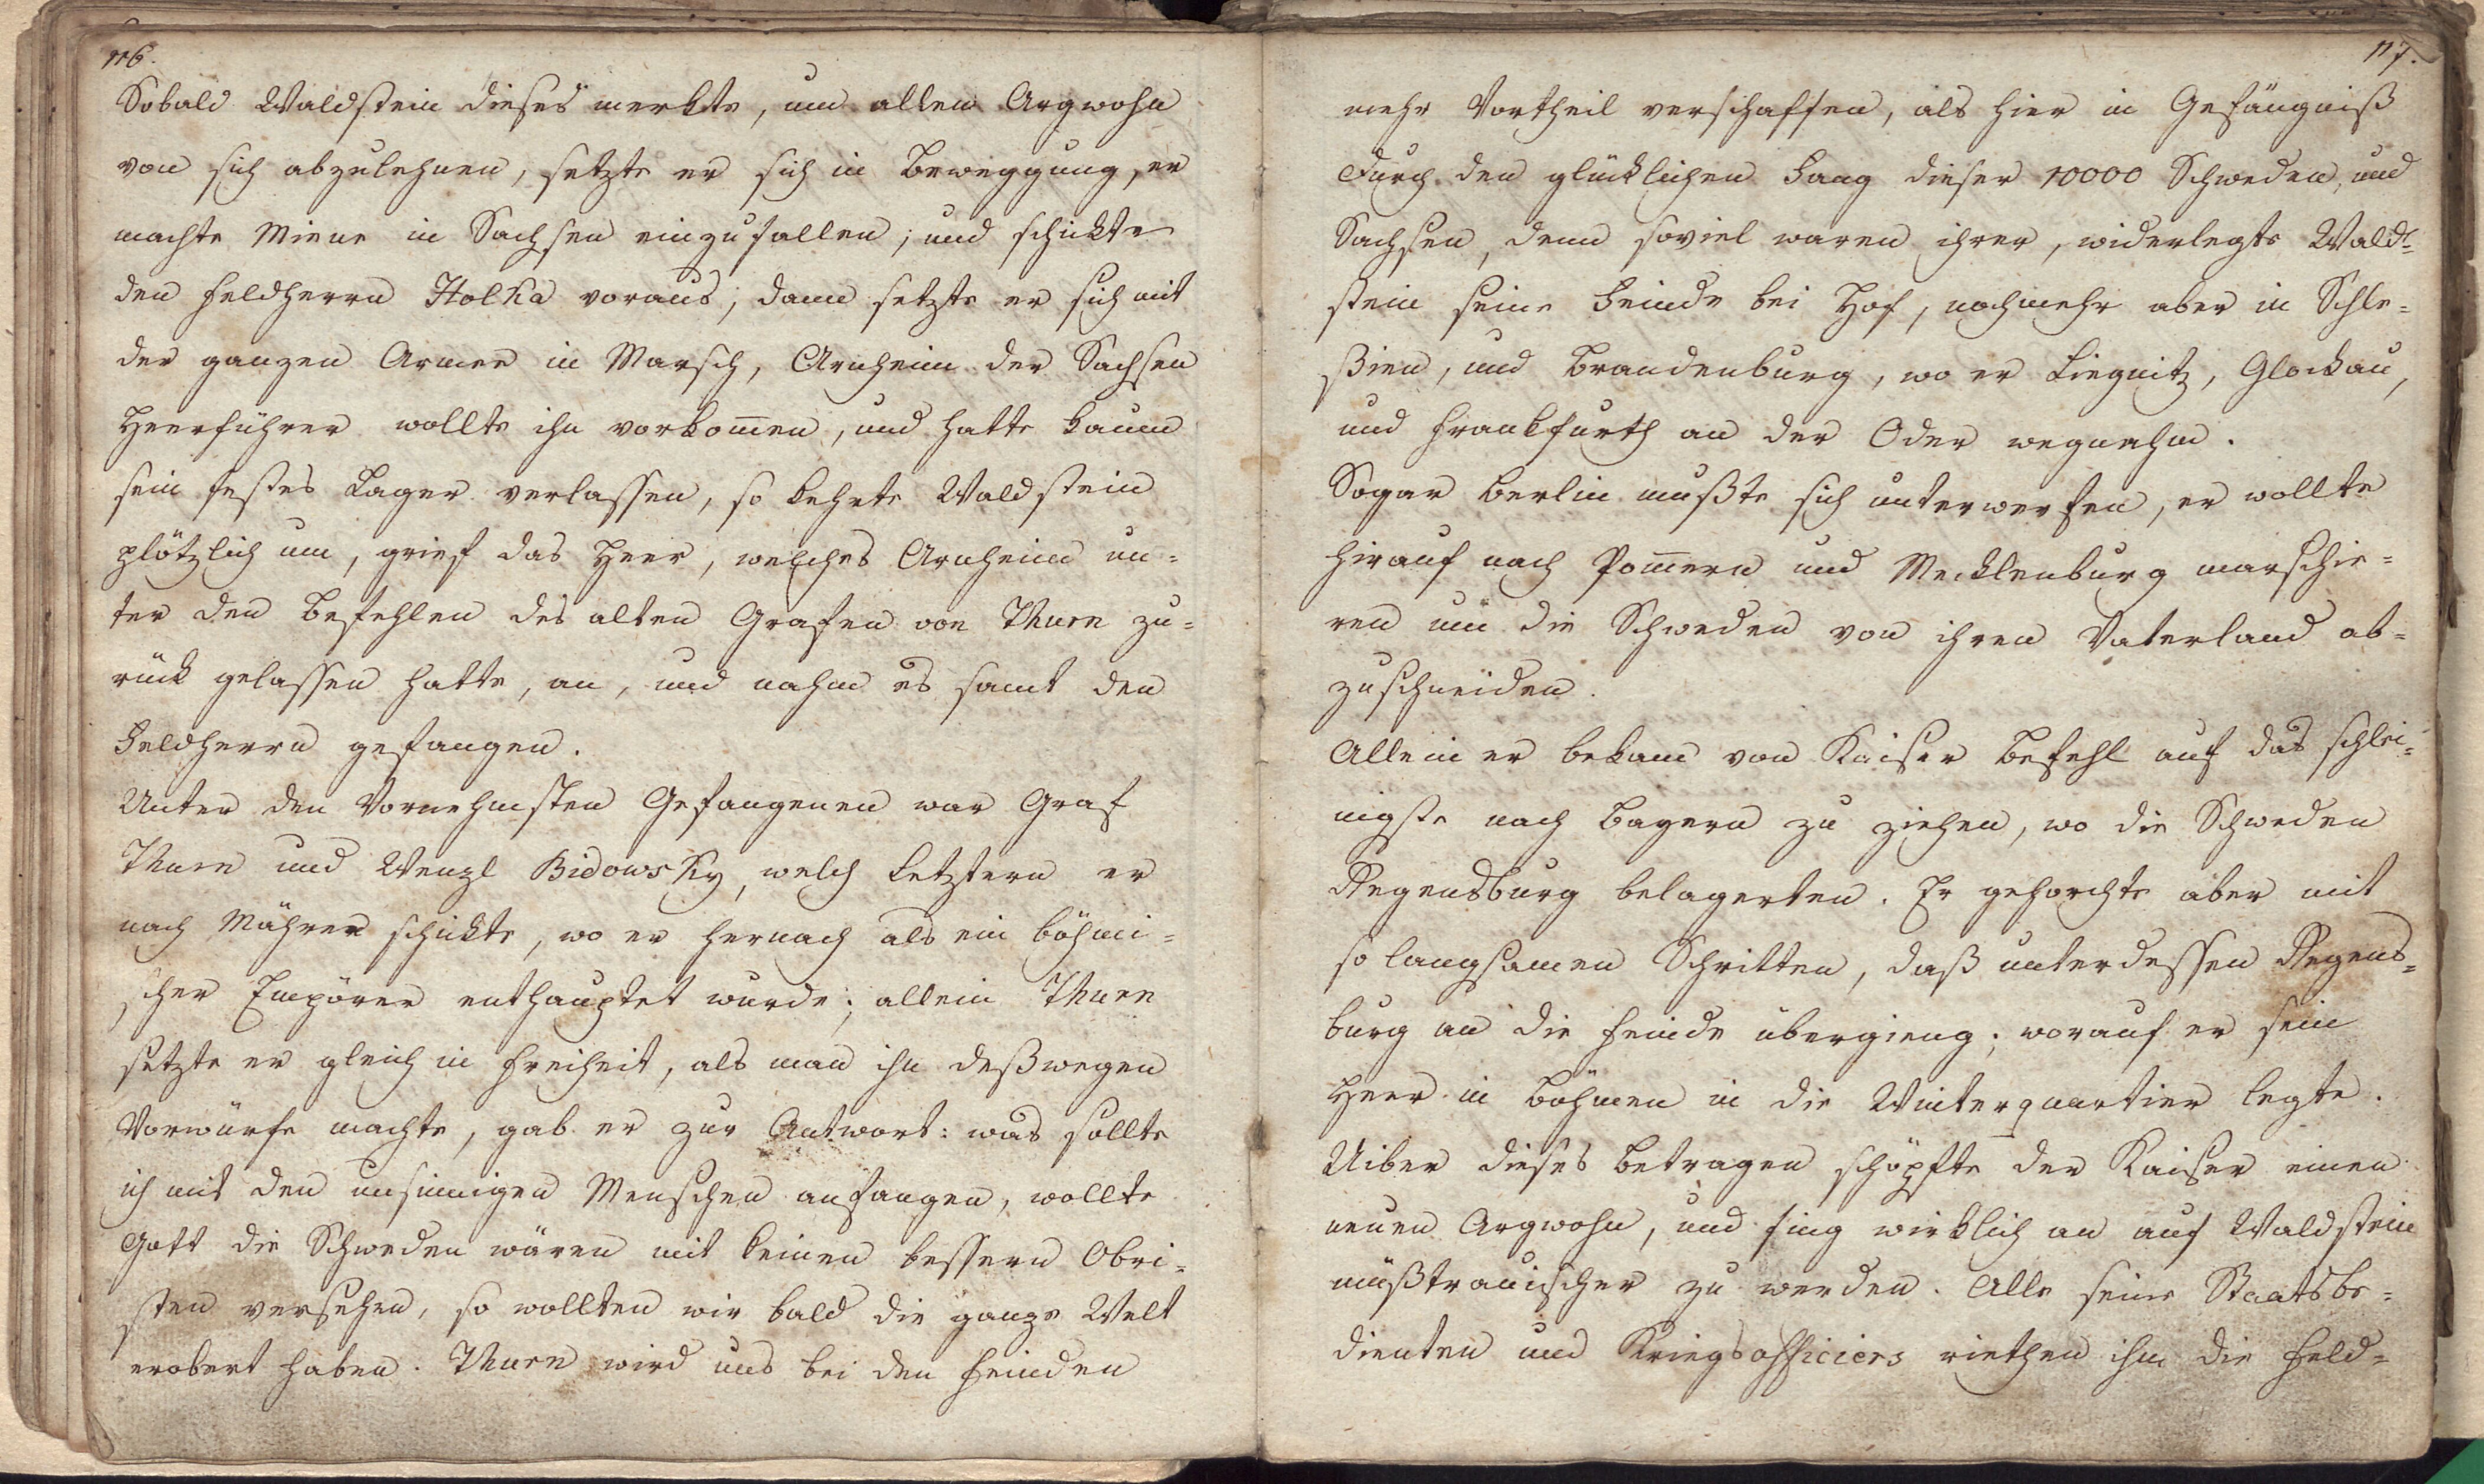 116.
Sobald Waldstein dieses merkte, um allen Argwohn
von sich abzulehnen, setzte er sich in Beweggung, er
machte Miene in Sachsen einzufallen; und schickte
den Feldherrn Holka voraus; dann setzte er sich mit
der ganzen Armee in Marsch, Arnheim der Sachsen
Heerführer wollte ihn vorkom̄en, und hatte kaum
sein festes Lager verlassen, so kehrte Waldstein
plötzlich um, grief das Heer, welches Arnheim un=
ter den Befehlen des alten Grafen von Thurn zu=
rück gelassen hatte, an, und nahm es samt den
Feldherrn gefangen.
Unter den Vornehmsten Gefangenen war Graf
Thurn und Wenzl Bidowsky, welch letztern er
nach Mähren schickte, wo er hernach als ein böhmi=
scher Empörer enthauptet wurde; allein Thurn
setzte er gleich in Freiheit, als man ihn deßwegen
Vorwürfe machte, gab er zur Antwort: was sollte
ich mit den unsinnigen Menschen anfangen, wollte
Gott die Schweden wären mit keinen bessern Obri=
sten versehen, so wollten wir bald die ganze Welt
erobert haben. Thurn wird uns bei den Feinden
117.
mehr Vortheil verschaffen, als hier in Gefängniß
Durch den glücklichen Fang dieser 10000 Schweden, und
Sachsen, denn soviel waren ihrer, widerlegte Wald=
stein seine Feinde bei Hof, nochmehr aber in Schle=
ßien, und Brandenburg, wo er Liegnitz, Glockau,
und Frankfurth an der Oder wegnahm.
Sogar Berlin mußte sich unterwerfen, er wollte
hirauf nach Pom̄ern und Mecklenburg marschie=
ren um die Schweden von ihren Vaterland ab=
zuschneiden.
Allein er bekam von Kaiser Befehl auf das schlei=
nigste nach Bayern zu ziehen, wo die Schweden
Regensburg belagerten. Er gehorchte aber mit
so langsamen Schritten, daß unterdessen Regens=
burg an die Feinde übergieng; worauf er sein
Heer in Böhmen in die Winterquartier legte.
Uiber dieses Betragen schöpfte der Kaiser einen
neuen Argwohn, und fing wirklich an auf Waldstein
müßtrauischer zu werden. Alle seine Staatsbe=
dienten und Kriegsofficiers riethen ihm die Feld=